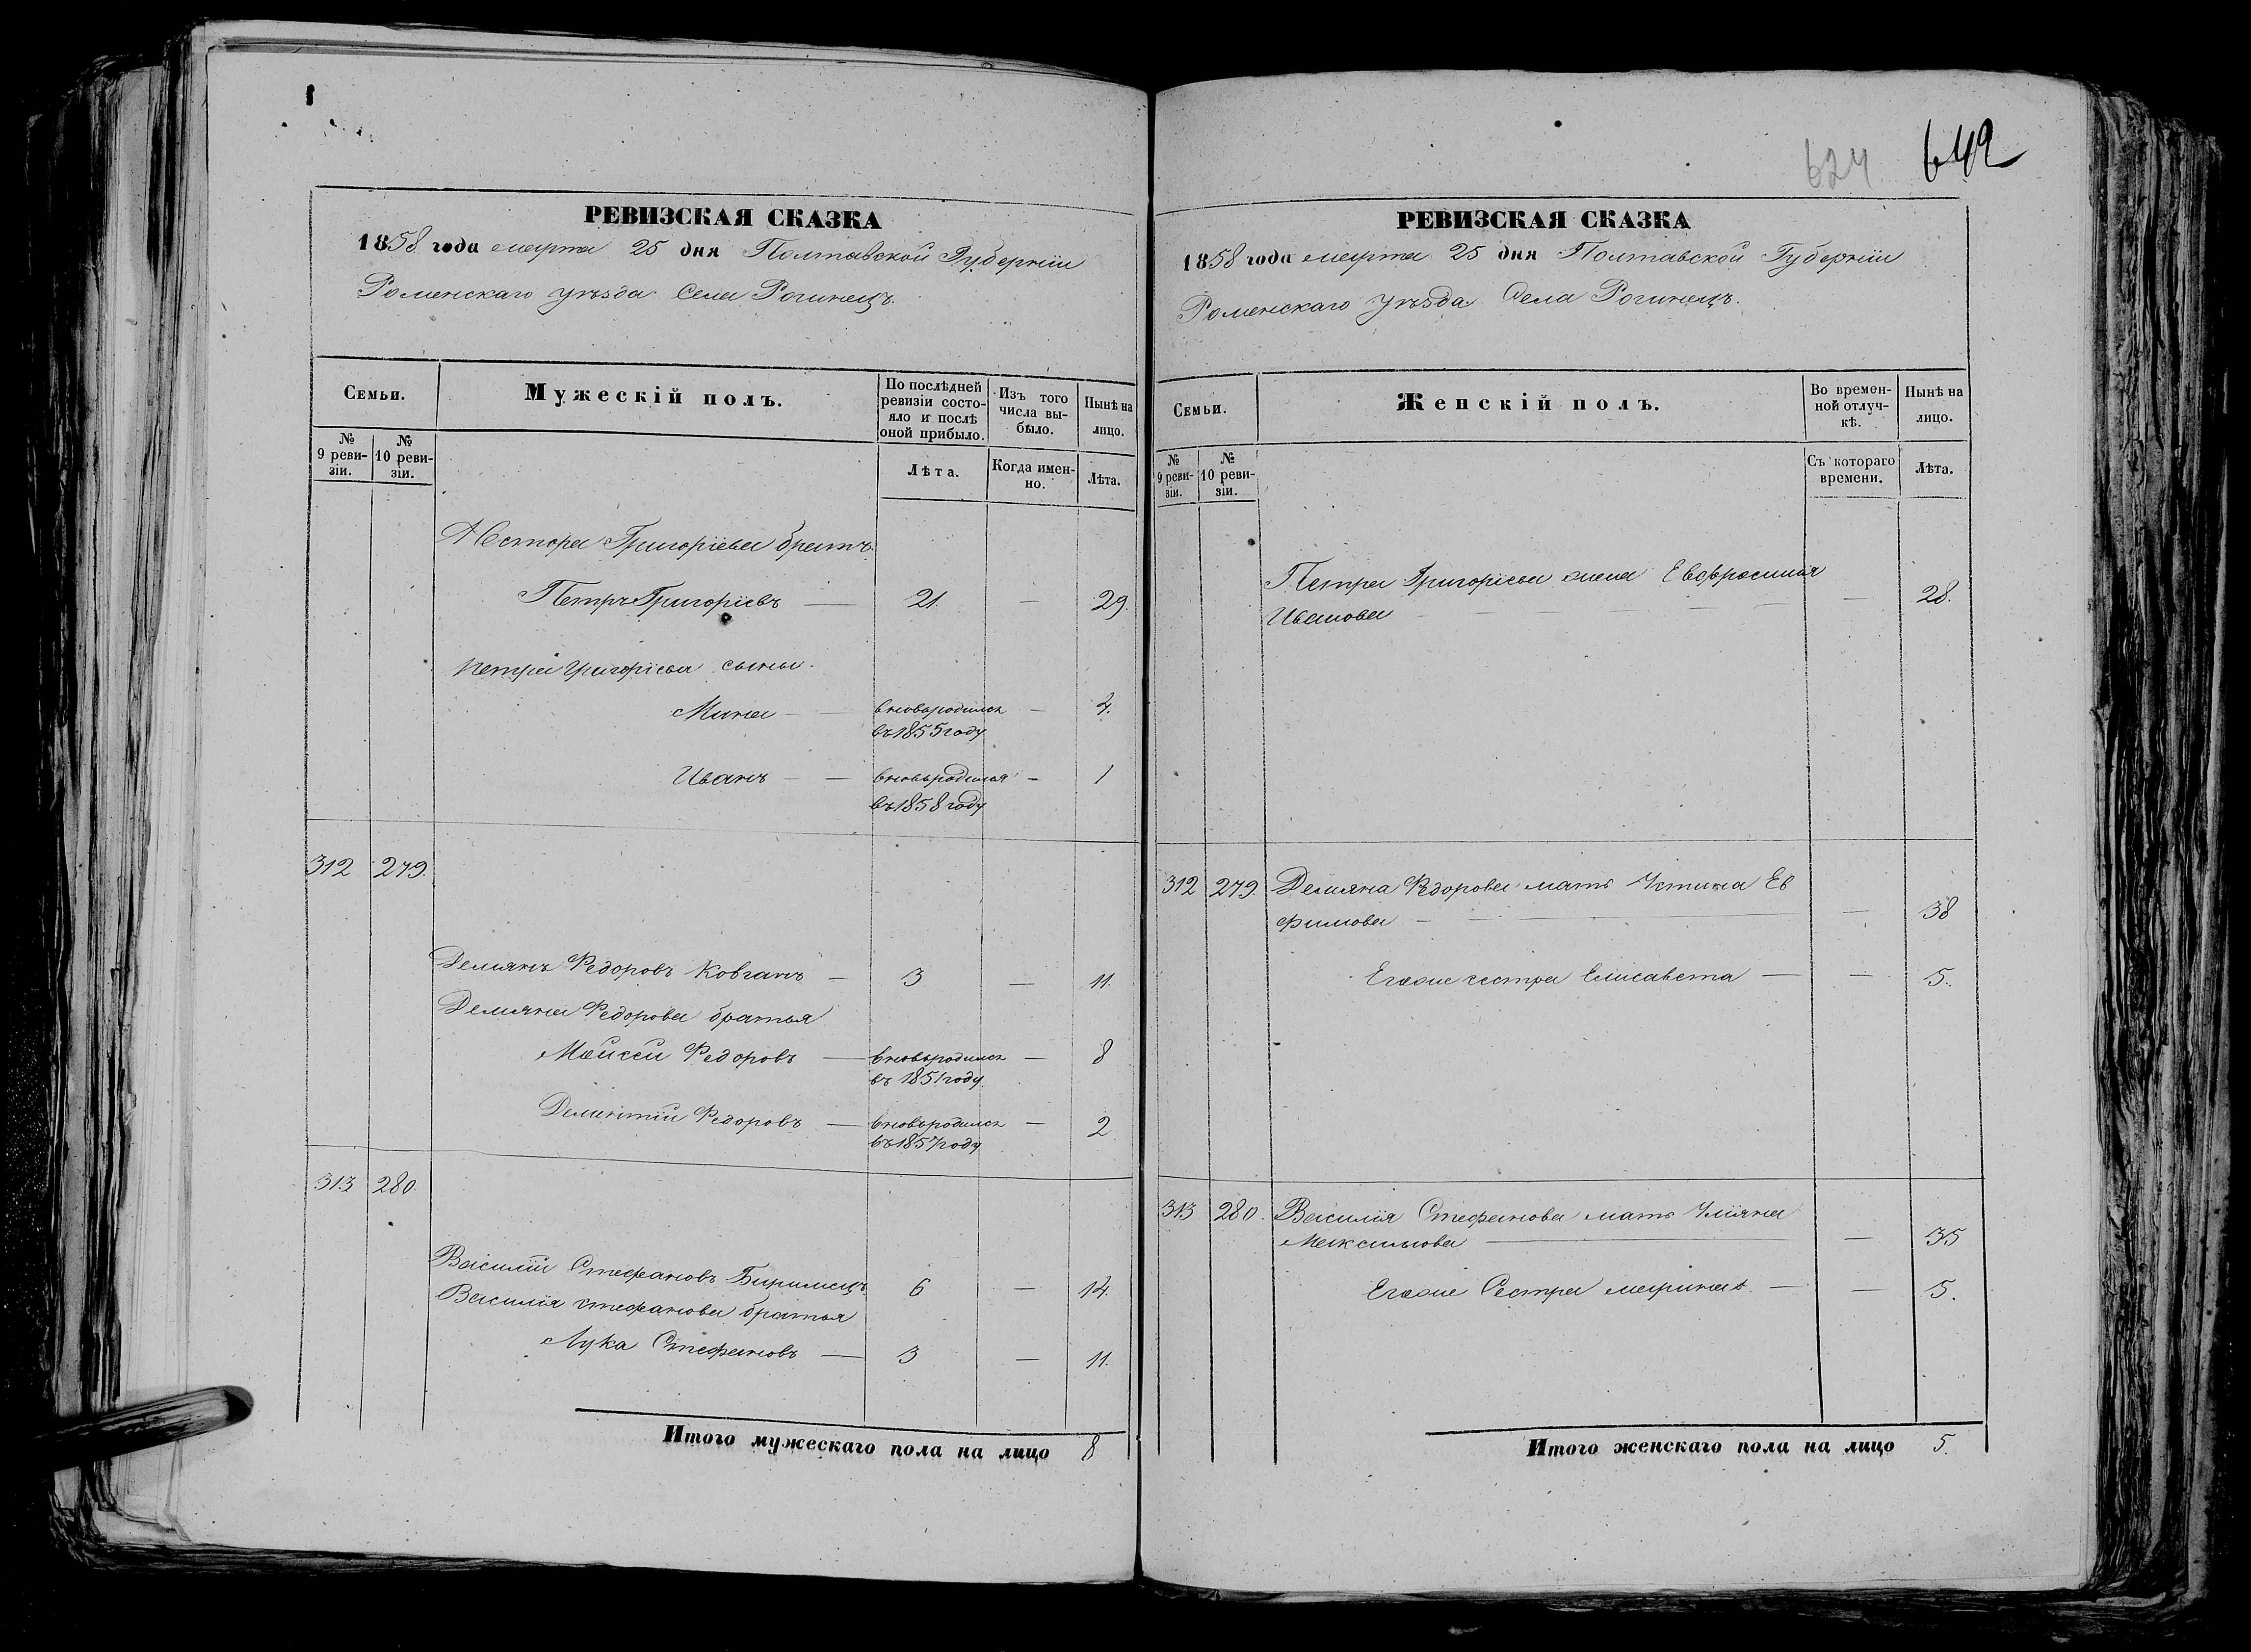 РЕВИЗСКАЯ СКАЗКА
1858 года марта 25 дня Полтавской Губерніи
Роменскаго уѣзда Села Рогинецъ.
Семьи.
Мужескій полъ.
По послѣдней ревизіи состояло и послѣ оной прибыло.
Изъ того числа выбыло.
Нынѣ на лицо.
№ 9 ревизіи.
№ 10 ревизіи.
Лѣта.
Когда именно.
Лѣта.
Нестора Григоріева братъ
Петръ Григоріевъ — 21. — 29.
Петра Григоріева сыны.
Мина — вновьродился — 4.
въ 1855 году
Иванъ — вновьродился — 1
въ 1858 году
312 279.
Демянъ Федоровъ Ковганъ — 3 — 11.
Демяна Федорова братья
Моисей Федоровъ — вновьродился — 8
въ 1851 году
Дементий Федоровъ — вновьродился — 2
въ 1857 году
313 280.
Василій Стефановъ 6 — 14.
Василія Стефанова братья
Лука Стефановъ — 3 — 11.
Итого мужескаго пола на лицо 8
624 642
РЕВИЗСКАЯ СКАЗКА
1858 года марта 25 дня Полтавской Губерніи
Роменскаго уѣзда Села Рогинецъ.
Семьи.
Женскій полъ.
Во временной отлучкѣ.
Нынѣ на лицо.
№ 9 ревизіи.
№ 10 ревизіи.
Съ котораго времени.
Лѣта.
Петра Григоріева жена Евфросинія
Иванова — 28.
312 279. Демяна Федорова мать Устина Ев
фимова — 38
Егоже сестра Елисавета — 5.
313 280. Василія Стефанова мать Уліяна
Максимова — 35
Егоже Сестра марина — 5.
Итого женскаго пола на лицо 5.